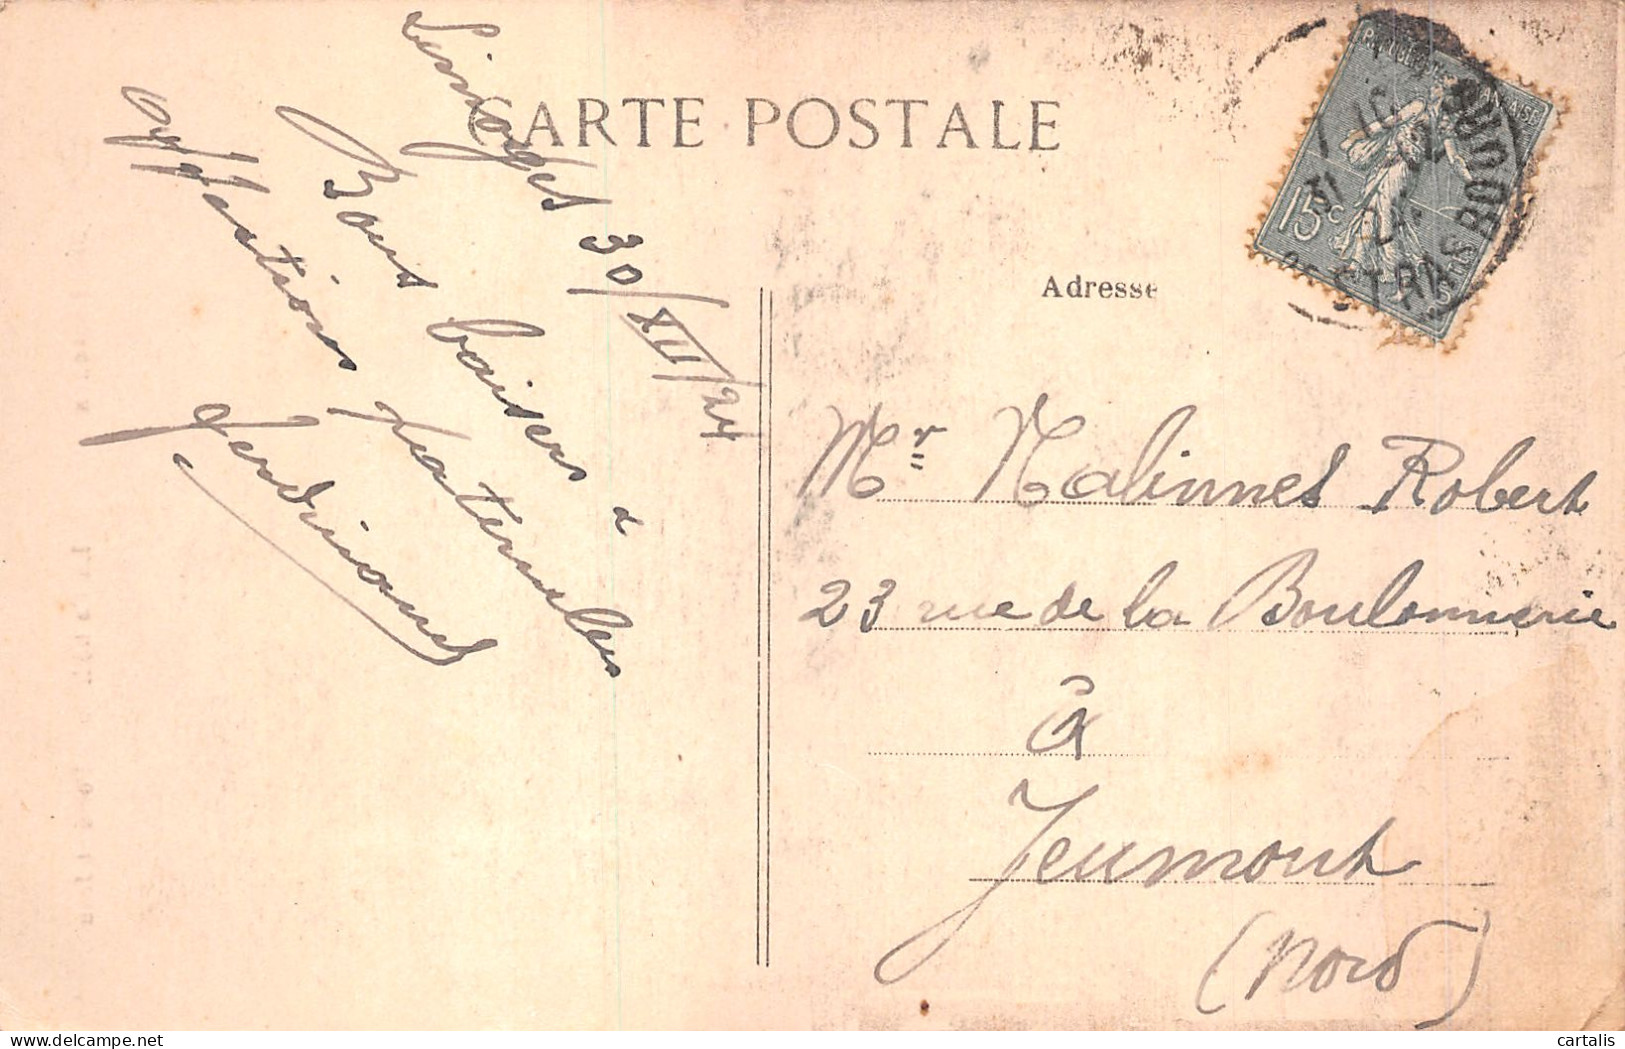 CARTE POSTALE
Limoges 30/XII/24
Bons baisers &
affections fraternelles
Ferdinand
RÉPUBLIQUE FRANÇAISE
15c
POSTES
Adresse
Mr Malinnes Robert
23 rue de la Boulonnerie
à
Jeumont
(Nord)
delcampe.net
cartalis